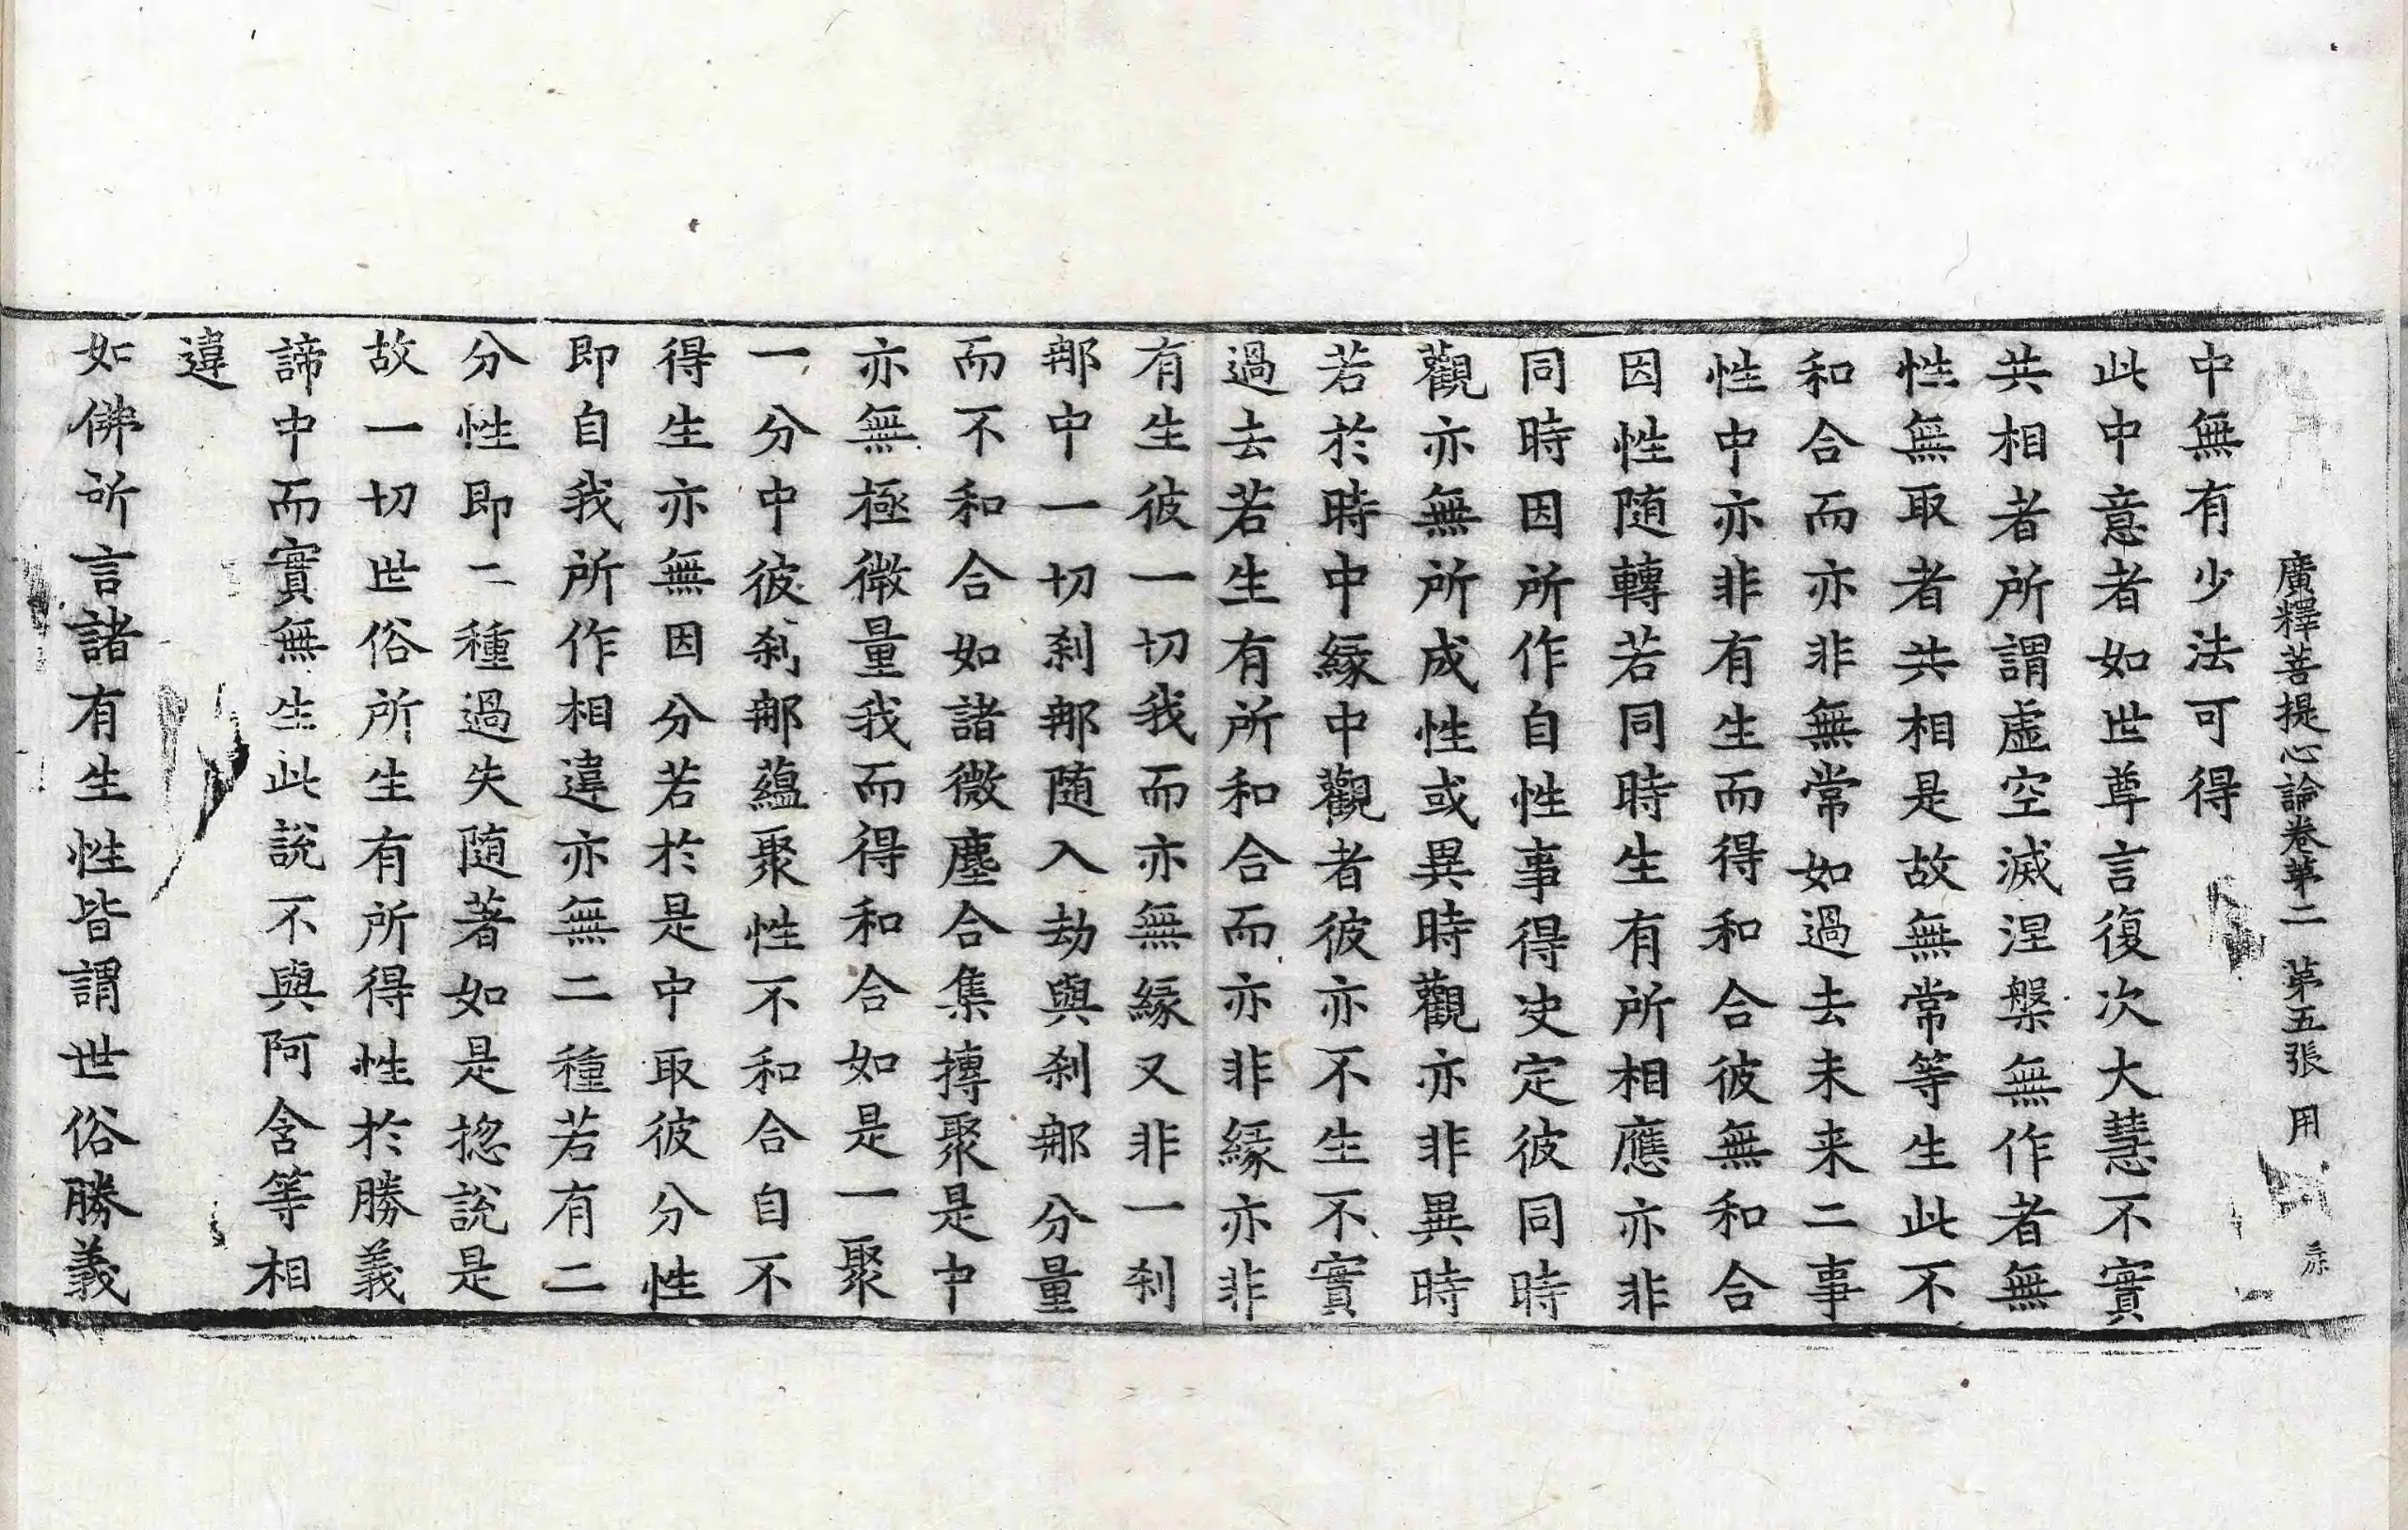 廣釋菩提心論卷苐二 苐五張 用
中無有少法可得
此中意者如世尊言復次大慧不實
共相者所謂虛空滅涅槃無作者無
性無取者共相是故無常等生此不
和合而亦非無常如過去未来二事
性中亦非有生而得和合彼無和合
因性随轉若同時生有所相應亦非
同時因所作自性事得决定彼同時
觀亦無所成性或異時觀亦非異時
若於時中緣中觀者彼亦不生不實
過去若生有所和合而亦非緣亦非
有生彼一切我而亦無緣又非一剎
那中一切剎那随入劫與剎那分量
而不和合如諸微塵合集摶聚是中
亦無極微量我而得和合如是一聚
一分中彼剎那蘊聚性不和合自不
得生亦無因分若於是中取彼分性
即自我所作相違亦無二種若有二
分性即二種過失随著如是揔說是
故一切世俗所生有所得性於勝義
諦中而實無生此說不與阿含等相
違
如佛所言諸有生性皆謂世俗勝義